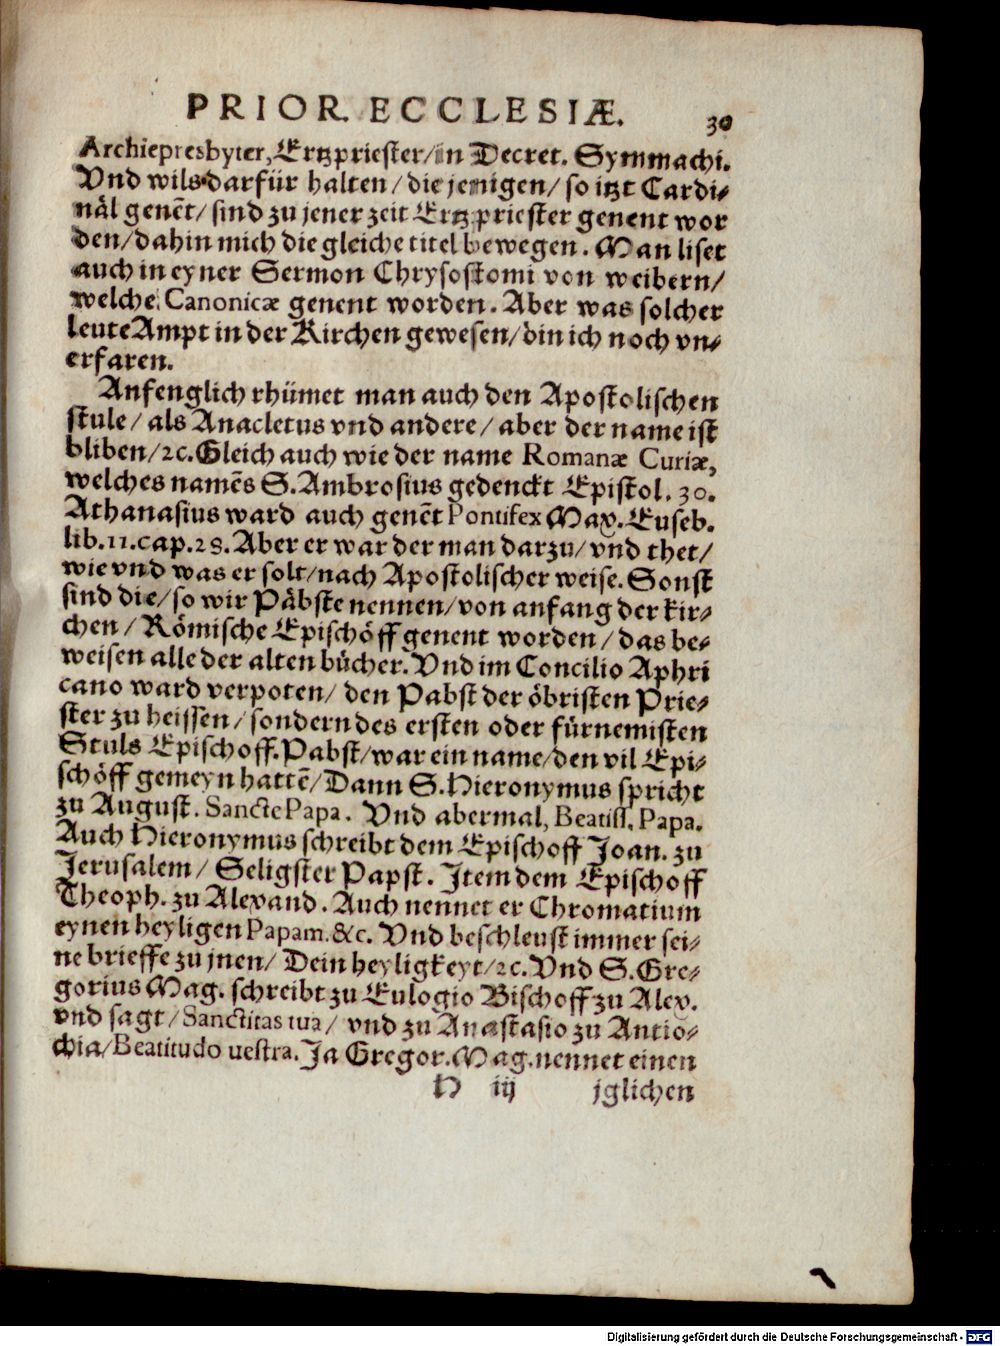 PRIOR. ECCLESIÆ. 30
Archiepresbyter, Ertzpriester/in Decret. Symmachi.
Vnd wils darfür halten/die jenigen/so itzt Cardi-
näl genēt/sind zu jener zeit Ertzpriester genent wor
den/dahin mich die gleiche titel bewegen. Man liset
auch in eyner Sermon Chrysostomi von weibern/
welche Canonicæ genent worden. Aber was solcher
leute Ampt in der Kirchen gewesen/bin ich noch vn-
erfaren.
Anfenglich rhümet man auch den Apostolischen
stule/als Anacletus vnd andere/aber der name ist
bliben/ꝛc. Gleich auch wie der name Romanæ Curiæ,
welches namēs S. Ambrosius gedenckt Epistol. 30.
Athanasius ward auch genēt Pontifex Max. Euseb.
lib. 11. cap. 28. Aber er war der man darzu/vnd thet/
wie vnd was er solt/nach Apostolischer weise. Sonst
sind die/so wir Päbste nennen/von anfang der kir-
chen/Römische Epischöff genent worden/das be-
weisen alle der alten bücher. Vnd im Concilio Aphri
cano ward verpoten/den Pabst der öbristen Prie-
ster zu heissen/sondern des ersten oder fürnemisten
Stuls Epischoff. Pabst/war ein name/den vil Epi-
schöff gemeyn hattē/Dann S. Hieronymus spricht
zu August. Sancte Papa. Vnd abermal, Beatiss. Papa.
Auch Hieronymus schreibt dem Epischoff Joan. zu
Jerusalem/Seligster Papst. Item dem Epischoff
Theoph. zu Alexand. Auch nennet er Chromatium
eynen heyligen Papam. &c. Vnd beschleust immer sei-
ne brieffe zu jnen/Dein heyligkeyt/ꝛc. Vnd S. Gre-
gorius Mag. schreibt zu Eulogio Bischoff zu Alex.
vnd sagt/Sanctitas tua/vnd zu Anastasio zu Antio-
chia/Beatitudo uestra. Ja Gregor. Mag. nennet einen
H iij jglichen
Digitalisierung gefördert durch die Deutsche Forschungsgemeinschaft - DFG